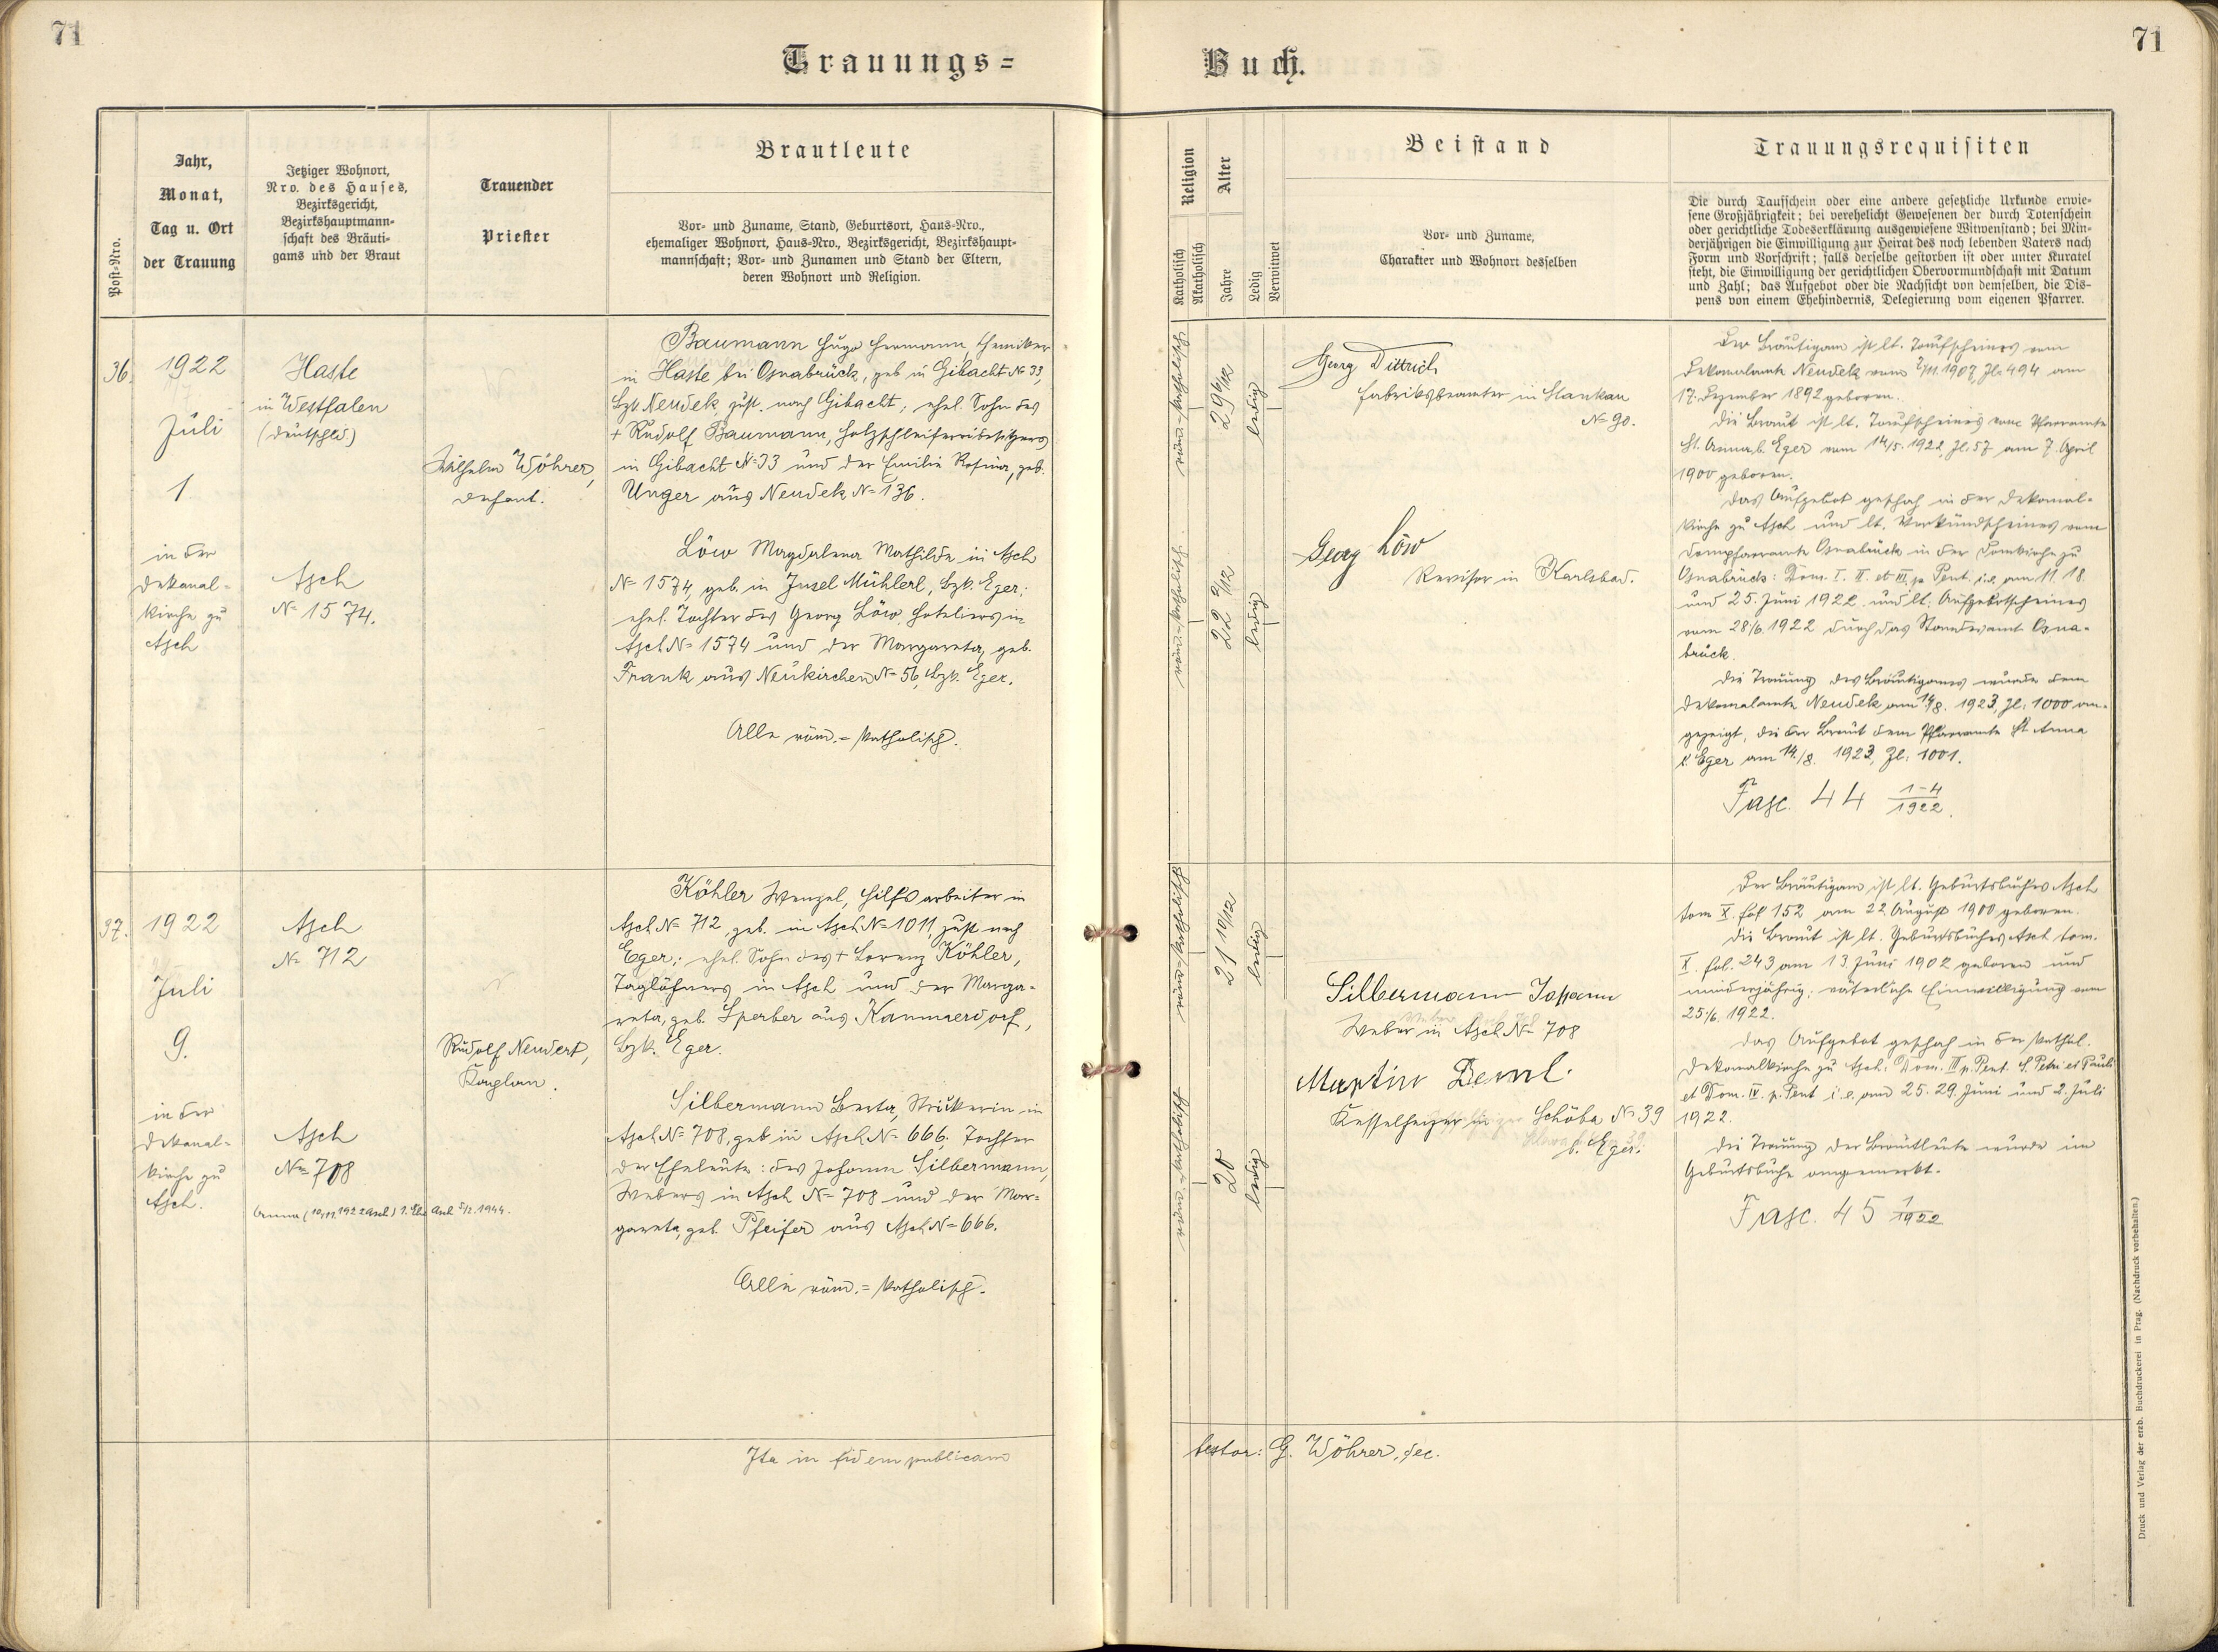 71
Trauungs=
Post=Nro.
Jahr,
Monat,
Tag u. Ort
der Trauung
Jetziger Wohnort,
Nro. des Hauses,
Bezirksgericht,
Bezirkshauptmann-
schaft des Bräuti-
gams und der Braut
Trauender
Priester
Brautleute
Vor- und Zuname, Stand, Geburtsort, Haus=Nro.,
ehemaliger Wohnort, Haus=Nro., Bezirksgericht, Bezirkshaupt-
mannschaft; Vor- und Zunamen und Stand der Eltern,
deren Wohnort und Religion.
36.
1922
Juli
1
in der
Dekanal=
kirche zu
Asch
Haste
in Westfalen
(Deutschld.)
Asch
No 1574.
Wilhelm Wöhrer,
Dechant.
Baumann Hugo Hermann, Chemiker
in Haste bei Osnabrück, geb in Gibacht No 33,
Bzk Neudek, zust. nach Gibacht; ehel. Sohn des
+ Rudolf Baumann, Holzschleifereibesitzers
in Gibacht No 33 und der Emilie Rosina, geb.
Unger aus Neudek No 136.
Löw Magdalena Mathilde in Asch
No 1574, geb. in Insel Mühlerl, Bzk. Eger;
ehel. Tochter des Georg Löw, Hoteliers in
Asch No 1574 und der Margareta, geb.
Frank aus Neukirchen No 56, Bzk. Eger.
Alle röm.=katholisch.
37.
1922
Juli
9.
in der
Dekanal=
kirche zu
Asch.
Asch
No 712
Asch
No 708
Anna (10/11.1922 Asch) 1. Ehe Asch 5/2.1944.
Rudolf Neudert,
Kaplan.
Köhler Wenzel, Hilfsarbeiter in
Asch No 712, geb. in Asch No 1011, zust nach
Eger; ehel. Sohn des + Lorenz Köhler,
Taglöhners in Asch und der Marga-
reta, geb. Sperber aus Kammerdorf,
Bzk. Eger.
Silbermann Berta, Strickerin in
Asch No 708, geb in Asch No 666; Tochter
der Eheleute: des Johann Silbermann,
Webers in Asch No 708 und der Mar=
gareta, geb. Pfeifer aus Asch No 666.
Alle röm.=katholisch.
Ita in fidem publicam
71
Buch.
Religion
Katholisch
Akatholisch
Alter
Jahre
Ledig
Verwitwet
Beistand
Vor- und Zuname,
Charakter und Wohnort desselben
Trauungsrequisiten
Die durch Taufschein oder eine andere gesetzliche Urkunde erwie-
sene Großjährigkeit; bei verehelicht Gewesenen der durch Totenschein
oder gerichtliche Todeserklärung ausgewiesene Witwenstand; bei Min-
derjährigen die Einwilligung zur Heirat des noch lebenden Vaters nach
Form und Vorschrift; falls derselbe gestorben ist oder unter Kuratel
steht, die Einwilligung der gerichtlichen Obervormundschaft mit Datum
und Zahl; das Aufgebot oder die Nachsicht von demselben, die Dis-
pens von einem Ehehindernis, Delegierung vom eigenen Pfarrer.
röm=katholisch
29 6/12
ledig
röm=katholisch
22 2/12
ledig
Georg Dittrich
Fabriksbeamter in Stankau
No 90.
Georg Löw
Revisor in Karlsbad.
Der Bräutigam ist lt. Taufscheines vom
Dekanalamte Neudek vom 2/11.1907, Zl. 494 am
17. Dezember 1892 geboren.
Die Braut ist lt. Taufscheines vom Pfarramte
St. Anna b. Eger vom 14/5. 1922, Zl. 57 am 7. April
1900 geboren.
Das Aufgebot geschah in der Dekanal-
kirche zu Asch und lt. Verkündscheines vom
Dompfarramte Osnabrück in der Domkirche zu
Osnabrück: Dom. I. II. et III. p. Pent. i.e. am 11. 18.
und 25. Juni 1922 und lt. Aufgebotscheines
vom 28/6. 1922 durch das Standesamt Osna-
brück.
Die Trauung des Bräutigams wurde dem
Dekanalamte Neudek am 14/8. 1923, Zl. 1000 an-
gezeigt, die der Braut dem Pfarramte St. Anna
b. Eger am 14./8. 1923, Zl. 1001.
Fasc. 44 1-4/1922.
röm=katholisch
21 10/12
ledig
röm=katholisch
20
ledig
Silbermann Johann
Weber in Asch No 708
Martin Deml.
Kesselheizer in Schöba No 39
b. Eger.
Der Bräutigam ist lt. Geburtsbuches Asch
tom X. fol 152 am 22. August 1900 geboren.
Die Braut ist lt. Geburtsbuches Asch tom.
X. fol. 243 am 13. Juni 1902 geboren und
minderjährig; väterliche Einwilligung vom
25/6. 1922.
Das Aufgebot geschah in der kathol.
Dekanalkirche zu Asch: Dom. III p. Pent. S. Petri et Pauli
et Dom. IV. p. Pent i.e. am 25. 29. Juni und 2. Juli
1922.
Die Trauung der Brautleute wurde im
Geburtsbuche angemerkt.
Fasc. 45 1/1922
testor: G. Wöhrer, dec.
Druck und Verlag der erzb. Buchdruckerei in Prag. (Nachdruck vorbehalten.)